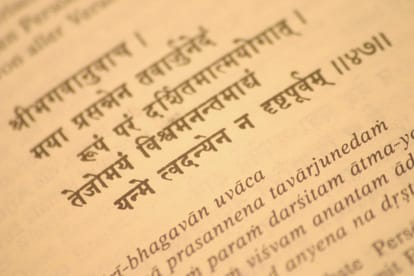 on aller Vera
श्रीभगवानुवाच ।
मया प्रसन्नेन तवार्जुनेदं
रूपं परं दर्शितमात्मयोगात् ।
तेजोमयं विश्वमनन्तमाद्यं
यन्मे त्वदन्येन न दृष्टपूर्वम् ॥४७॥
rī-bhagavān uvāca
prasannena tavārjunedaṁ
paraṁ darśitam ātma-yo
viśvam anantam ād
anyena na dṛṣṭ